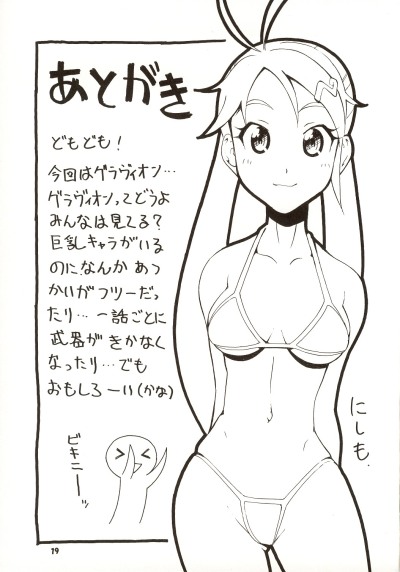 あとがき
どもども!
今回はゲラヴィオン…
ゲラヴィオンってどうよ
みんなは見てる?
巨乳キャラがいる
のになんかあつ
かいがフツーだっ
たり…一話ごとに
武器がきかなく
なったり…でも
おもしろーい(かな)
ビキニーッ
にしも.
19